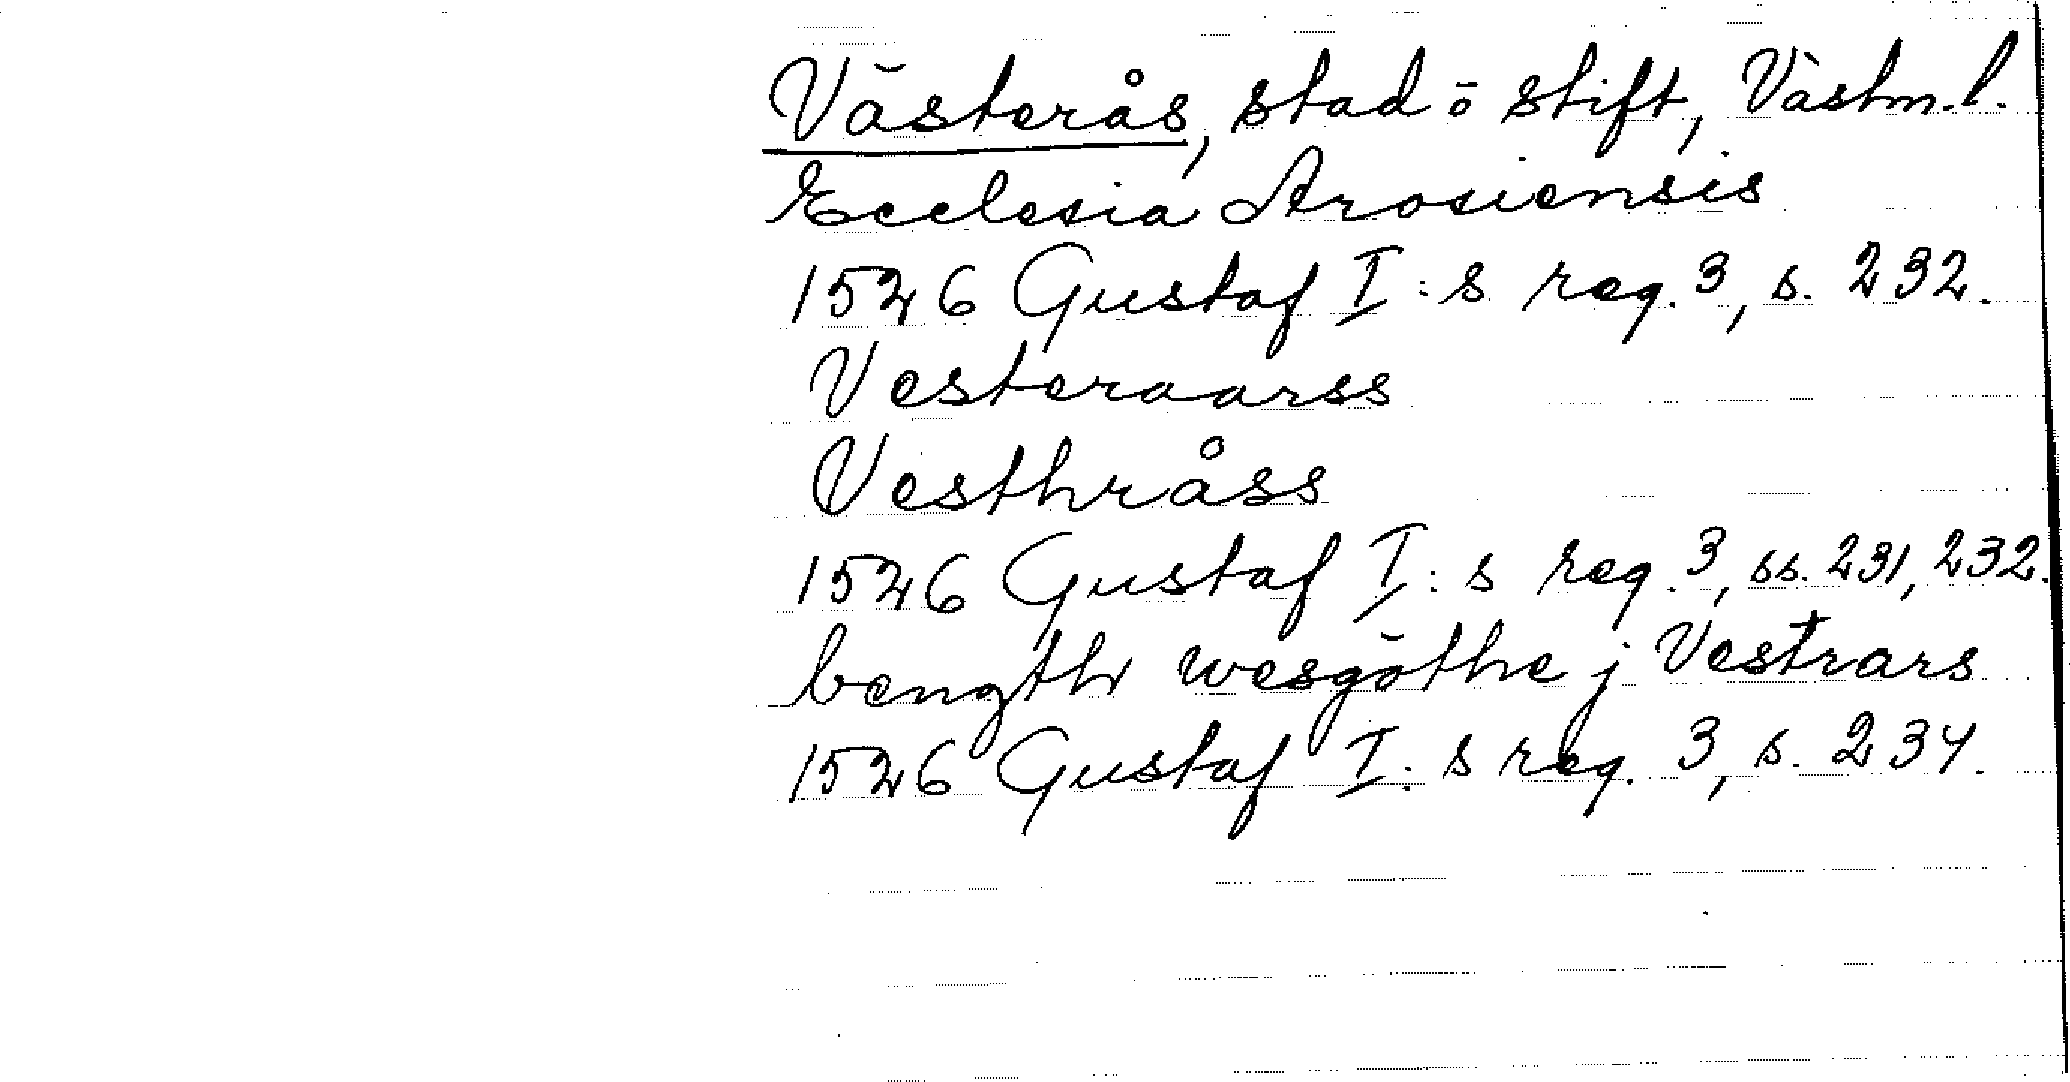 Västerås, stad ō stift, Västm. l.
Ecclesia Arosiensis
1526 Gustaf I:s reg. 3, s. 232.
Vesteraarss
Vesthråss
1526 Gustaf I:s reg. 3, ss. 231, 232.
bength wesgöthe j Vestrars
1526 Gustaf I:s reg. 3, s. 234.